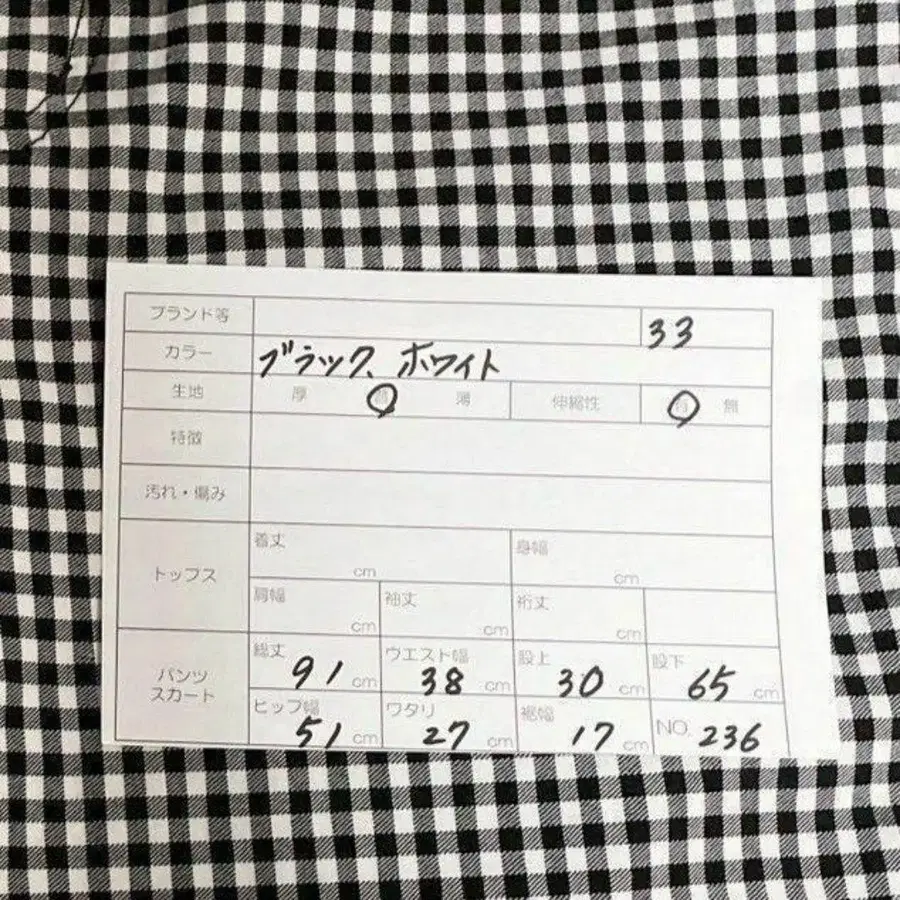 ブランド等 33
カラー ブラック、ホワイト
生地 厚 薄 伸縮性 有 無
特徴
汚れ・傷み
トップス 着丈 cm 身幅 cm
肩幅 cm 袖丈 cm 裄丈 cm
パンツ スカート 総丈 91 cm ウエスト幅 38 cm 股上 30 cm 股下 65 cm
ヒップ幅 51 cm ワタリ 27 cm 裾幅 17 cm NO. 236